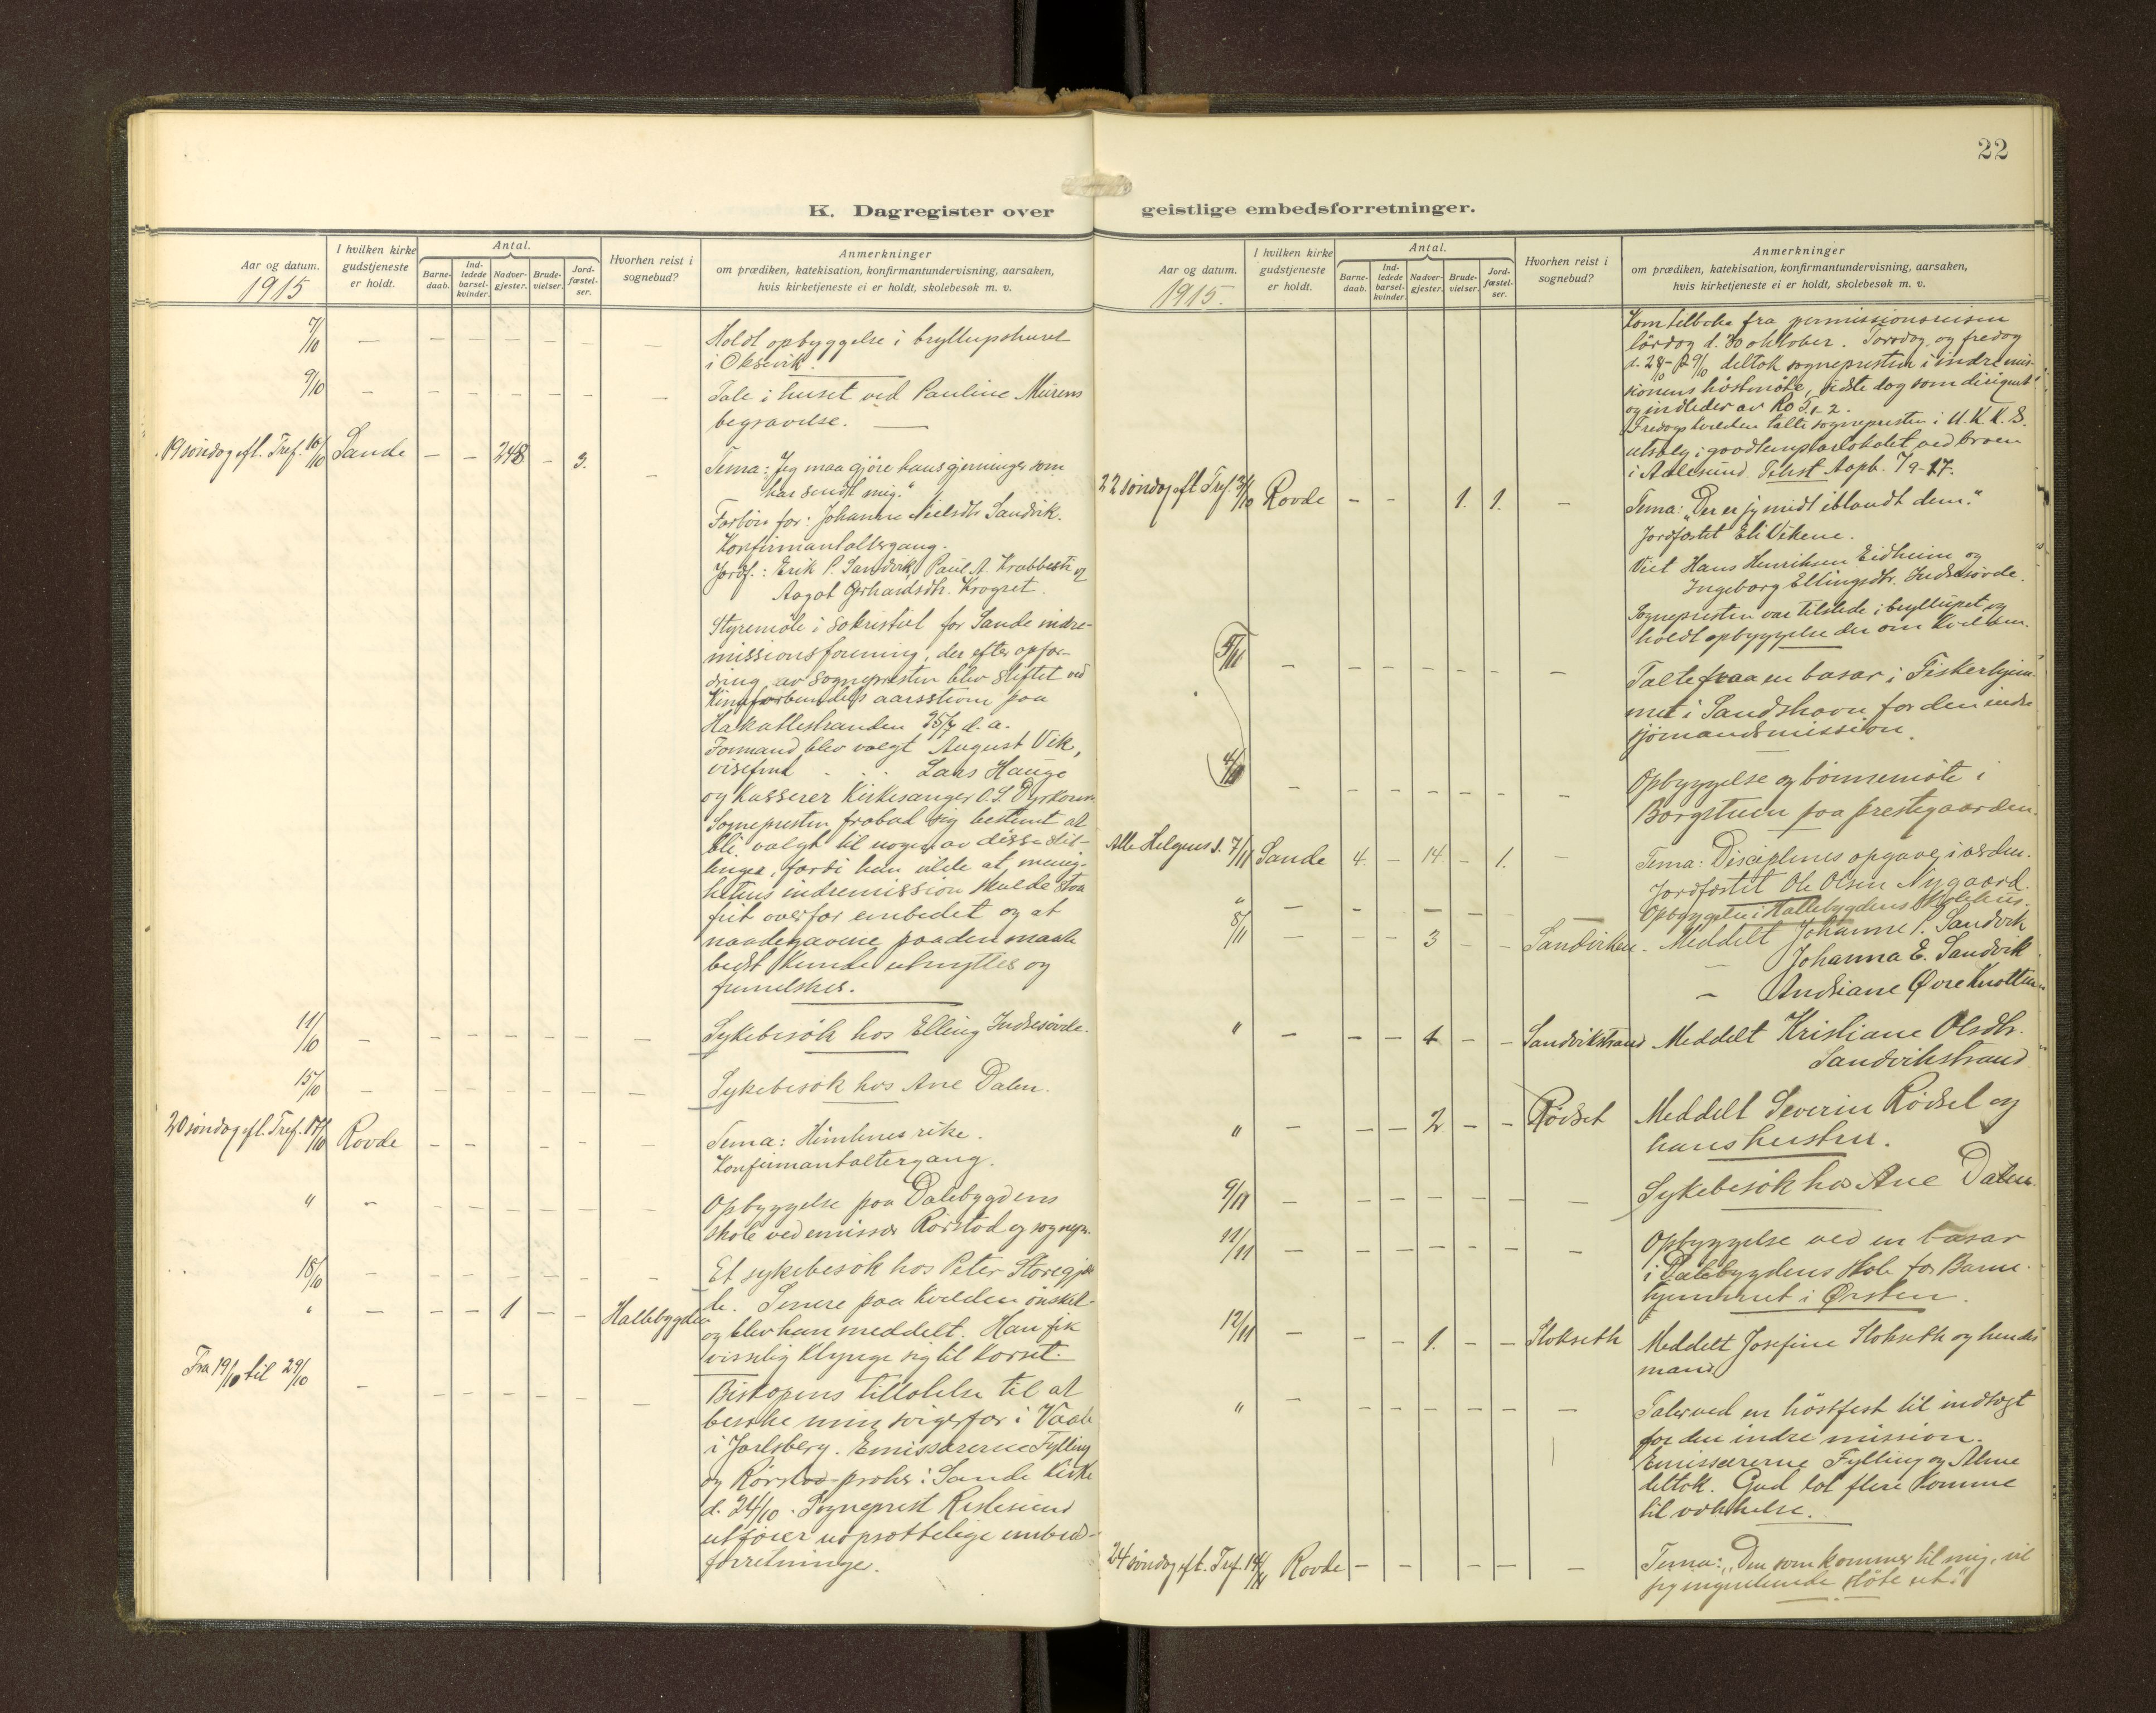 22
K. Dagregister over
geistlige embedsforretninger.
Aar og datum.
1915
I hvilken kirke gudstjeneste er holdt.
Antal.
Barne-daab.
Ind-ledede barsel-kvinder.
Nadver-gjester.
Brude-vielser.
Jord-fæstel-ser.
Hvorhen reist i sognebud?
Anmerkninger
om prædiken, katekisation, konfirmantundervisning, aarsaken,
hvis kirketjeneste ei er holdt, skolebesøk m. v.
7/10 — — — — — — —
Holdt opbyggelse i bryllupshuset
i Oksevik.
9/10 — — — — — — —
Tale i huset ved Pauline Murens
begravelse.
19 søndag eft. Tref. 10/10 Sande — — 248 — 3. —
Tema: Jeg maa gjøre hans gjerninger som
har sendt mig."
Forbøn for: Johanne Nielsdtr Sandvik.
Konfirmantaltergang.
Jordf.: Erik P. Sandvik, Paul A. Krabbestig
Aagot Gerhardsdtr. Kragset.
Styremøte i sakristiet for Sande indre-
missionsforening, der efter opfor-
dring av sognepresten blev stiftet ved
Kinaforbundets aarsstevne paa
Hakallestranden 25/7 d. a.
Formand blev valgt August Vik,
visefmd . . . Lars Hauge
og kasserer Kirkesanger O. S. Dyrkorn.
Sognepresten frabad sig bestemt at
bli valgt til nogen av disse stil-
linger, fordi han vilde at menig-
hetens indremission skulde staa
frit overfor embedet og at
naadegavene paa den maate
bedst kunde utnyttes og
fremelskes.
11/10 — — — — — — —
Sykebesøk hos Elling Indresøvde.
15/10 — — — — — — —
Sykebesøk hos Ane Dalen.
20 søndag eft. Tref. 17/10 Rovde — — — — —
Tema: Himlenes rike.
Konfirmantaltergang.
" — — — — — — —
Opbyggelse paa Dalebygdens
skole ved emissær Rørstad og sognepr.
18/10 — — — — — —
Et sykebesøk hos Peter
Senere paa kvelden ønsket
" — — — 1 — — Hallebygden
og blev han meddelt. Han fik
visselig klynge sig til korset.
Fra 19/10 til 29/10 — — — — — — —
Biskopens tillatelse til at
besøke min svigerfar i Vaale
i Jarlsberg. Emissærerne Fylling
og Rørstad præker i Sande kirke
d. 24/10. Sogneprest Ristesund
utfører uopsættelige embeds-
forretninger.
Aar og datum.
1915.
I hvilken kirke gudstjeneste er holdt.
Antal.
Barne-daab.
Ind-ledede barsel-kvinder.
Nadver-gjester.
Brude-vielser.
Jord-fæstel-ser.
Hvorhen reist i sognebud?
Anmerkninger
om prædiken, katekisation, konfirmantundervisning, aarsaken,
hvis kirketjeneste ei er holdt, skolebesøk m. v.
Kom tilbake fra permissionsreisen
lørdag d. 30 oktober. Torsdag og fredag
d. 28/10-29/10 deltok sognepresten i indremis-
sionens høstmøte, sidste dag som dirigent
og indleder av Ro
Fredagskvelden talte sognepresten i U. K. K. S.
utsalg i goodtemplarlokalet ved broen
i Aalesund. Tekst Aapb. 7 9-17.
22 søndag eft. Tref. 31/10 Rovde — — 1. 1. —
Tema: „Der er jeg midt iblandt dem."
Jordfæstet Eli Vikene.
Viet Hans Henriksen Eidheim og
Ingeborg Ellingsdtr. Indresøvde.
Sognepresten var tilstede i bryllupet og
holdt opbyggelse der om kvelden.
5/11 — — — — — — —
Talte paa en basar i Fiskerhjem-
met i Sandshavn for den indre
sjømandsmission.
4/11 — — — — — — —
Opbyggelse og bønnemøte i
Borgstuen paa prestegaarden.
Alle Helgens s. 7/11 Sande 4. — 14 — 1. —
Tema: Disciplenes opgave i verden.
Jordfæstet Ole Olsen Nygaard.
" — — — — —
Opbyggelse i Hallebygdens skolehus.
8/11 — — — 3 — — Sandviken.
Meddelt Johanne P. Sandvik
— Johanna E. Sandvik
— Andriane Øvre Knotten
" — — — 1 — — Sandvikstrand
Meddelt Kristiane Olsdtr.
Sandvikstrand
" — — — 2 — — Rødset
Meddelt Severin Rødset og
hans hustru.
9/11 — — — — — — —
Sykebesøk hos Ane Dalen.
11/11 — — — — — — —
Opbyggelse ved en basar
i Dalebygdens skole for Barne-
hjemmet i Ørsten.
12/11 — — — 1. — — Stokseth
Meddelt Josefine Stokseth og hendes
mand
" — — — — — — —
Taler ved en høstfest til indtægt
for den indre mission.
Emissærerne Fylling og Alme
deltok. Gud lot flere komme
til vækkelse.
24 søndag eft. Tref. 14/11 Rovde — — — — —
Tema: „Den som kommer til mig, vil
jeg ingenlunde støte ut."